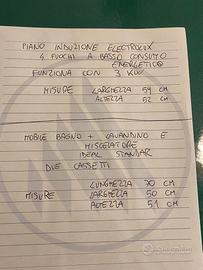 PIANO INDUZIONE ELECTROLUX
4 FUOCHI A BASSO CONSUMO
ENERGETICO
FUNZIONA CON 3 KW
MISURE LARGHEZZA 59 CM
ALTEZZA 52 CM
MOBILE BAGNO + LAVANDINO E
MISCELATORE
IDEAL STANDAR
DUE CASSETTI
LUNGHEZZA 70 CM
MISURE LARGHEZZA 50 CM
ALTEZZA 51 CM
subito